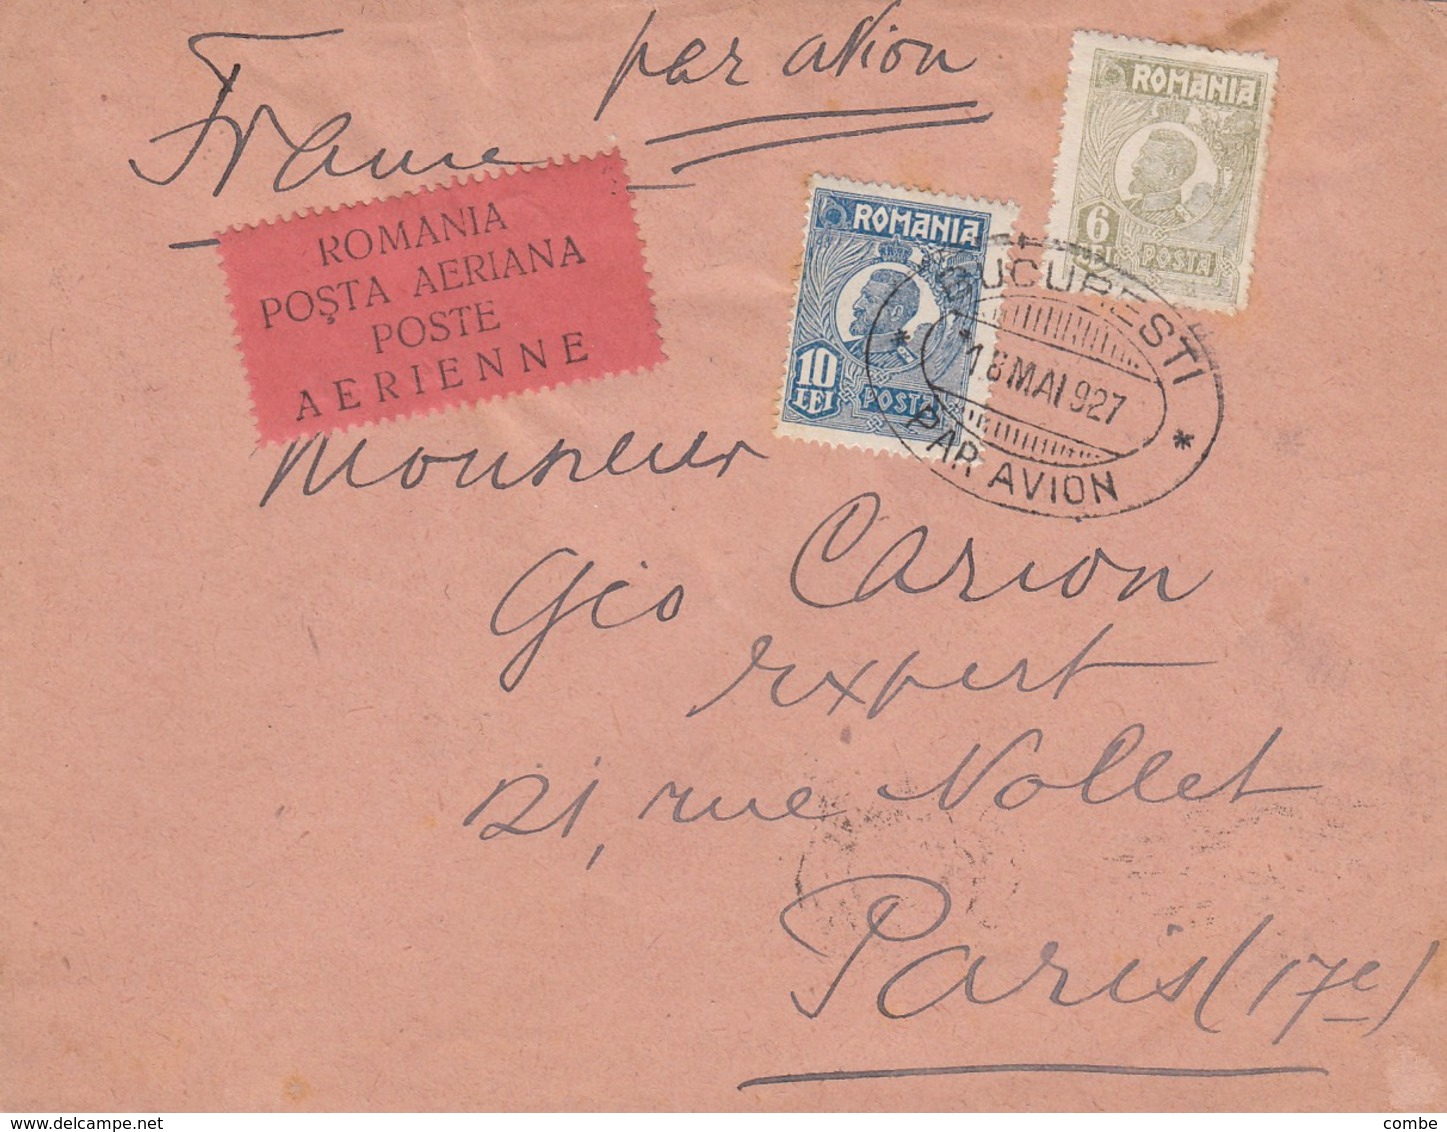 par avion
France
ROMANIA
POŞTA AERIANA
POSTE
AERIENNE
ROMANIA
6
LEI POSTA
ROMANIA
10
LEI POSTA
BUCUREŞTI
18 MAI 927
PAR AVION
Monsieur
Géo Carion
expert
121, rue Nollet
Paris (17e)
www.delcampe.net
combe